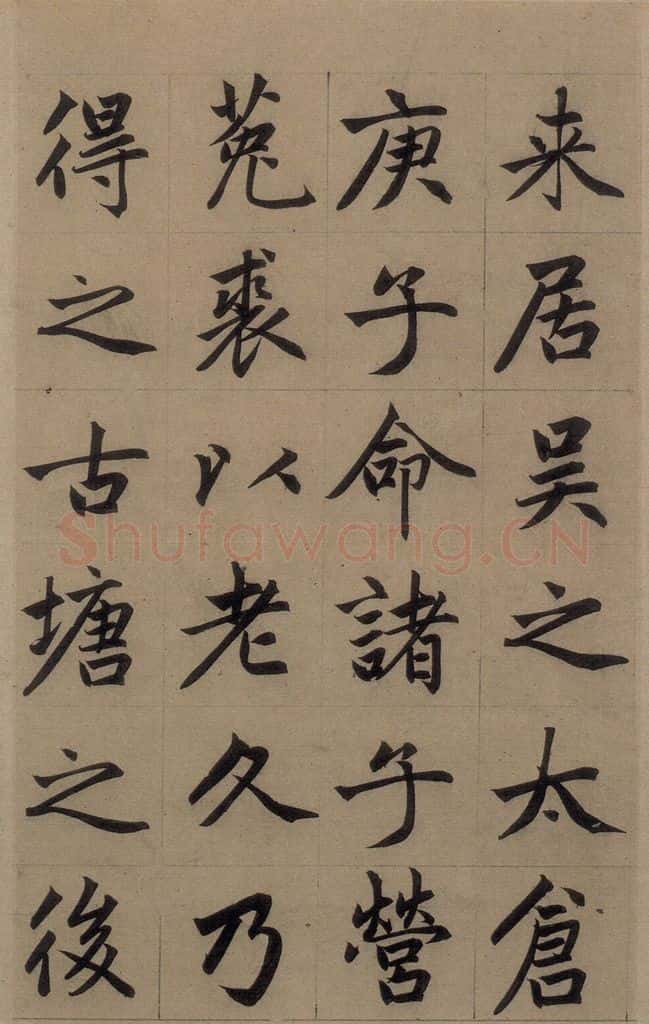 来居吴之太倉
庚子命諸子營
菟裘以老久乃
得之古塘之後
Shufawang.CN